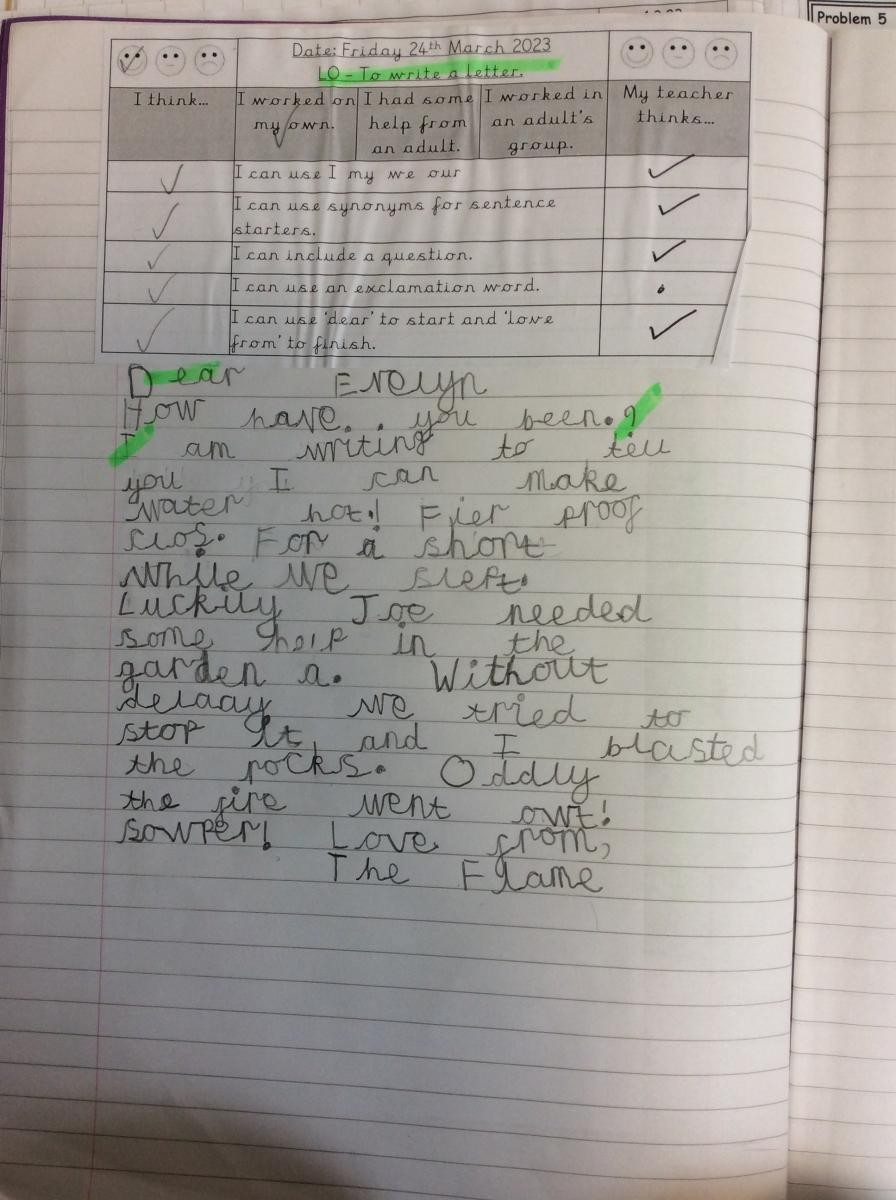 Problem 5
Date: Friday 24th March 2023
LO - To write a letter.
I think...
I worked on my own.
I had some help from an adult.
I worked in an adult's group.
My teacher thinks...
I can use I my we our
I can use synonyms for sentence
starters.
I can include a question.
I can use an exclamation word.
I can use 'dear' to start and 'love
from' to finish.
Dear Evelyn
How have . . you been.?
I am writing to tell
you I can make
water hot! Fier proof
For a short
while we slept.
Luckily Joe needed
some help in the
garden a. Without
delaay we tried to
stop it, and I blasted
the rocks. Oddly
the fire went owt!
sowper! Love from,
The Flame